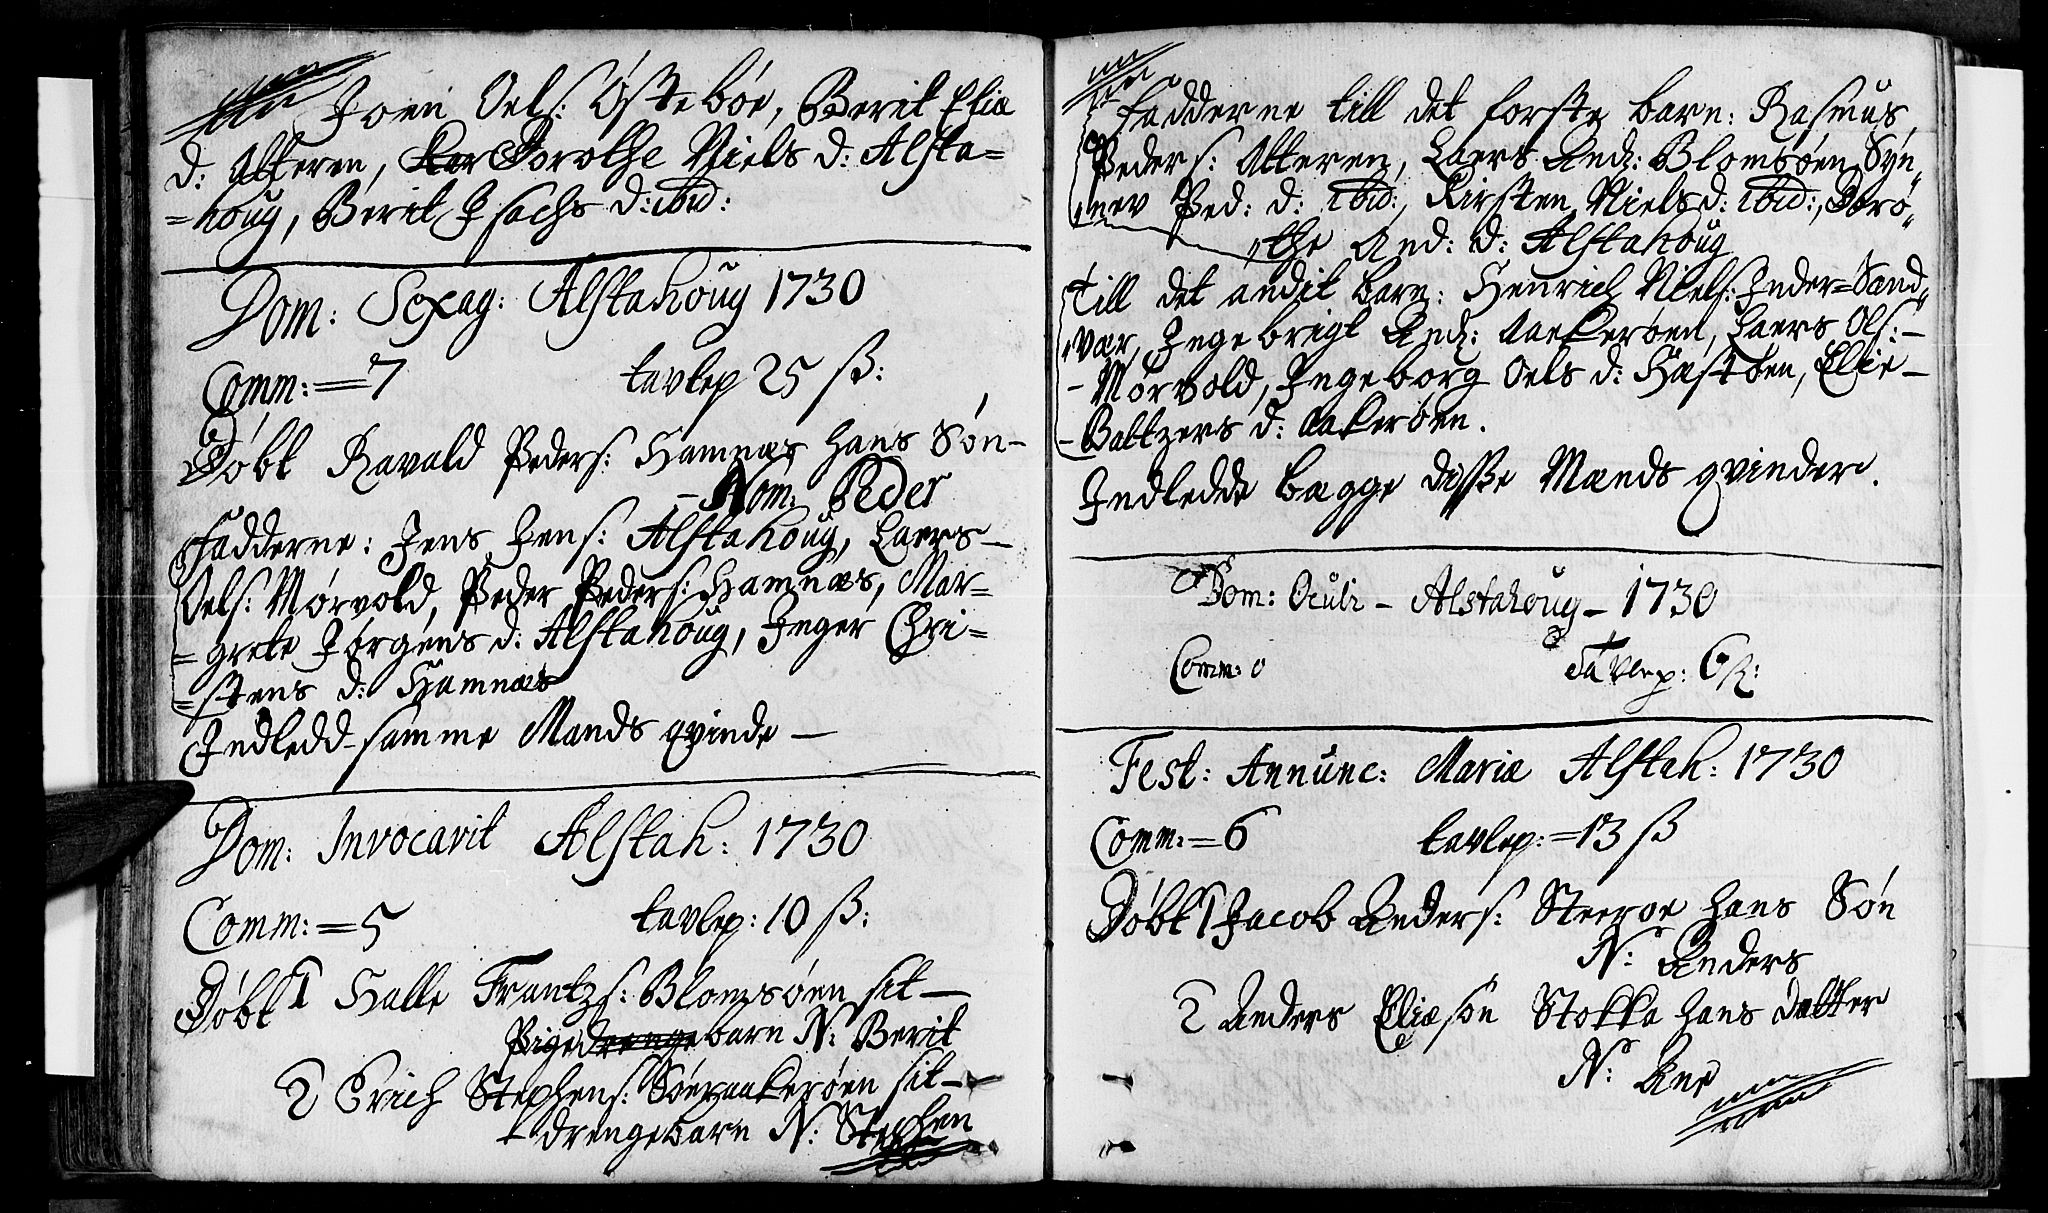 Joen Oels: Østebøe, Berit Eliæ
d: Alteren, Kar Dorothe Niels d: Alsta=
=houg, Berit Isachs d: ibid:
Dom: Sexag: Alstahoug 1730
Comm: = 7 tavlep 25 ß:
Døbt Ravald Peders: Hamnæs hans Søn -
- Nom: Peder
Fadderne: Jens Jens: Alstahoug, Laers -
Oels: Mørvold, Peder Peders: Hamnæs, Mar=
=grete Jørgens d: Alstahoug, Inger Chri=
=stens d: Hamnæs
Indledd samme Mands qvinde -
Dom: Invocavit Alstah: 1730
Comm: = 5 tavlep: 10 ß:
Døbt 1 Halle Frantzs: Blomsøen sit -
Pigedrengebarn N: Berit
2 Erich Stephens: Søeraakerøen sit -
- drengebarn N: Stephen
Fadderne till det første barn: Rasmus
Peders: Alteren, Laers And: Blomsøen, Syn„
„nev Ped: d: ibid:, Kirsten Niels d: ibid:, Doro„
„the And: d: Alstahoug
Till det andit barn: Henrich Niels: Inder=Sand„
„vær, Ingebrigt And: Aakerøen, Laers Ols: -
- Mørvold, Ingeborg Oels d: Hastben, Elie -
- Baltzers d: Aakerøen.
Indledde begge disse Mænds qvinder.
Dom: Oculi - Alstahoug - 1730
Comm: 0 Tavlep: 6 ß:
Fest: Annunc: Mariæ Alstah: 1730
Comm: = 6 tavlep: = 13 ß
Døbt 1 Jacob Anders: Steeroe hans Søn
N: Anders
2 Anders Eliæsøn Stokka hans datter
N: Ane